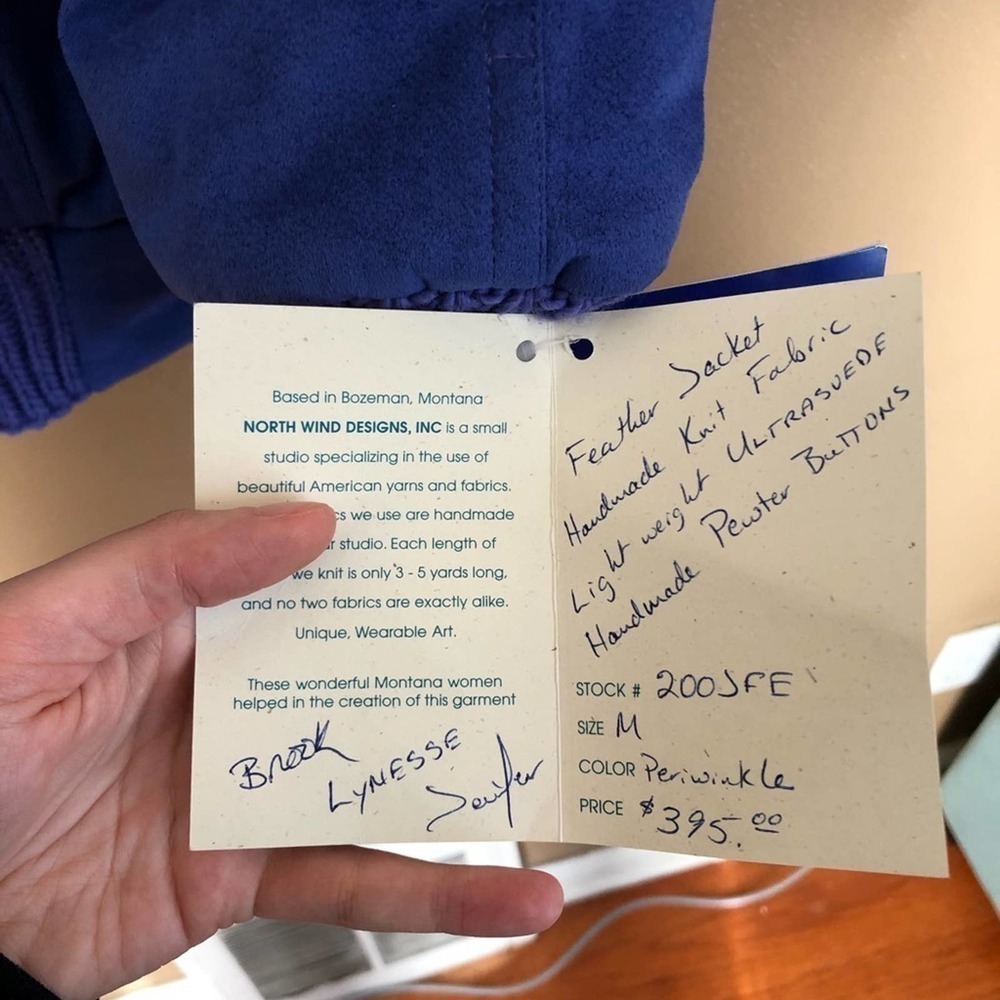 Based in Bozeman, Montana
NORTH WIND DESIGNS, INC is a small
studio specializing in the use of
beautiful American yarns and fabrics.
we use are handmade
studio. Each length of
we knit is only 3 - 5 yards long,
and no two fabrics are exactly alike.
Unique, Wearable Art.
These wonderful Montana women
helped in the creation of this garment
Brook
LYNESSE
Jenifer
Feather Jacket
Handmade Knit Fabric
Light weight ULTRASUEDE
Handmade Pewter BUTTONS
STOCK # 200JFE
SIZE M
COLOR Periwinkle
PRICE $395.00